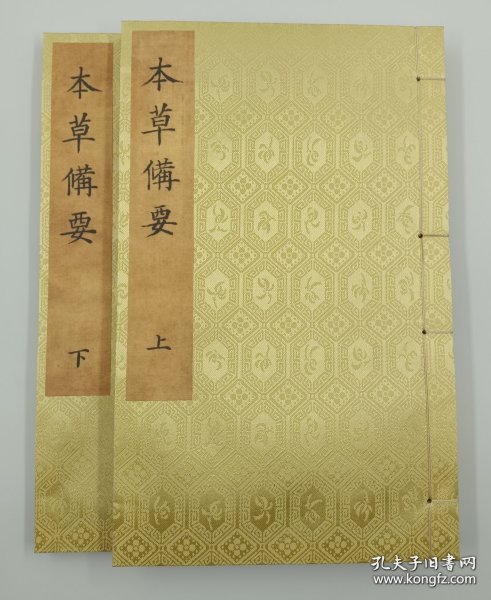 本草備要
上
本草備要
下
孔夫子旧书网
www.kongfz.com